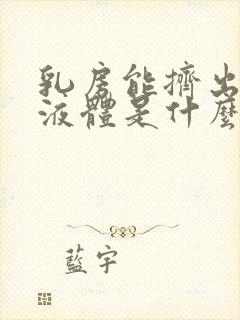 乳房能擠出
液體是什麼
藍宇